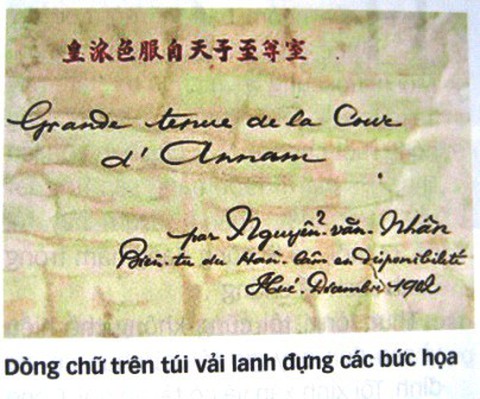 皇派色服自天子至尊室
Grande tenue de la Cour
d'Annam
par Nguyễn-văn-Nhân
Biên-tu du Hàn-lâm en disponibilité
Hué-Décembre 1902
Dòng chữ trên túi vải lanh đựng các bức họa